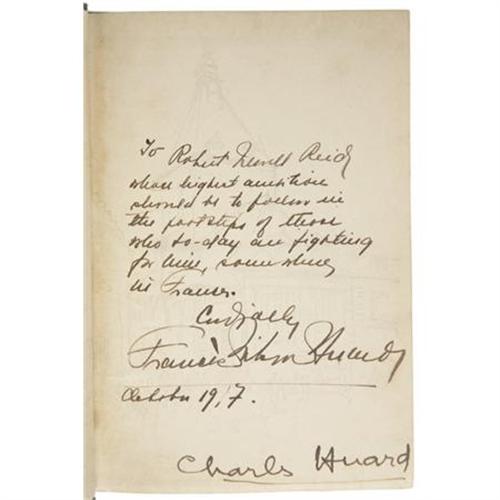 To Robert Newell Reidy
whose highest ambition
should be to follow in
the footsteps of those
who to-day are fighting
for him, somewhere
in France.
Cordially
Frances Wilson Huard
October 1917.
Charles Huard